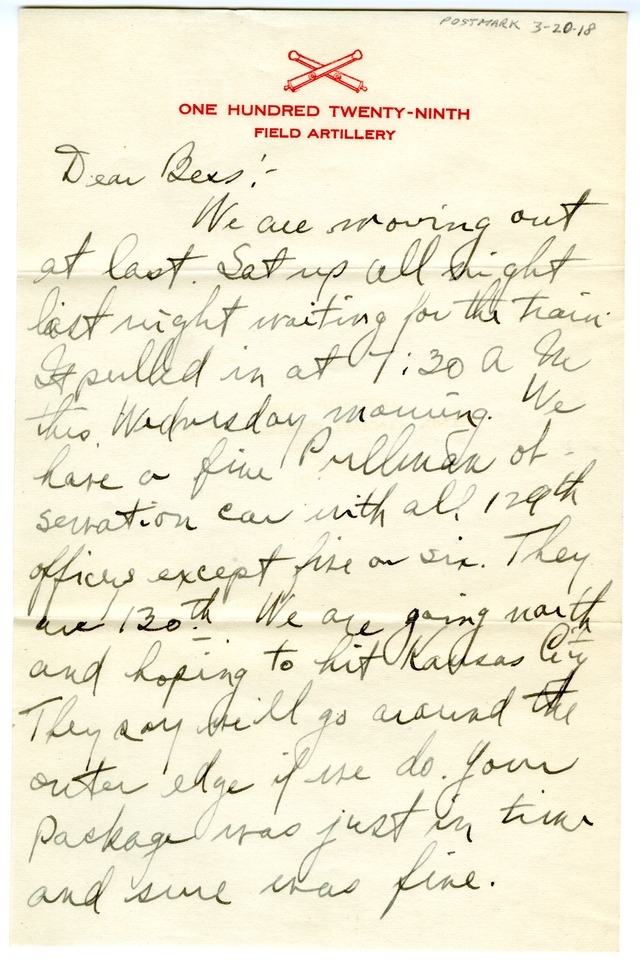 POSTMARK 3-20-18
ONE HUNDRED TWENTY-NINTH
FIELD ARTILLERY
Dear Bess:-
We are moving out
at last. Sat up all night
last night waiting for the train.
It pulled in at 7:30 A M
this Wednesday morning. We
have a fine Pullman ob-
servation car with all 129th
officers except five or six. They
are 130th. We are going north
and hoping to hit Kansas City
They say we'll go around the
outer edge if we do. Your
package was just in time
and sure was fine.